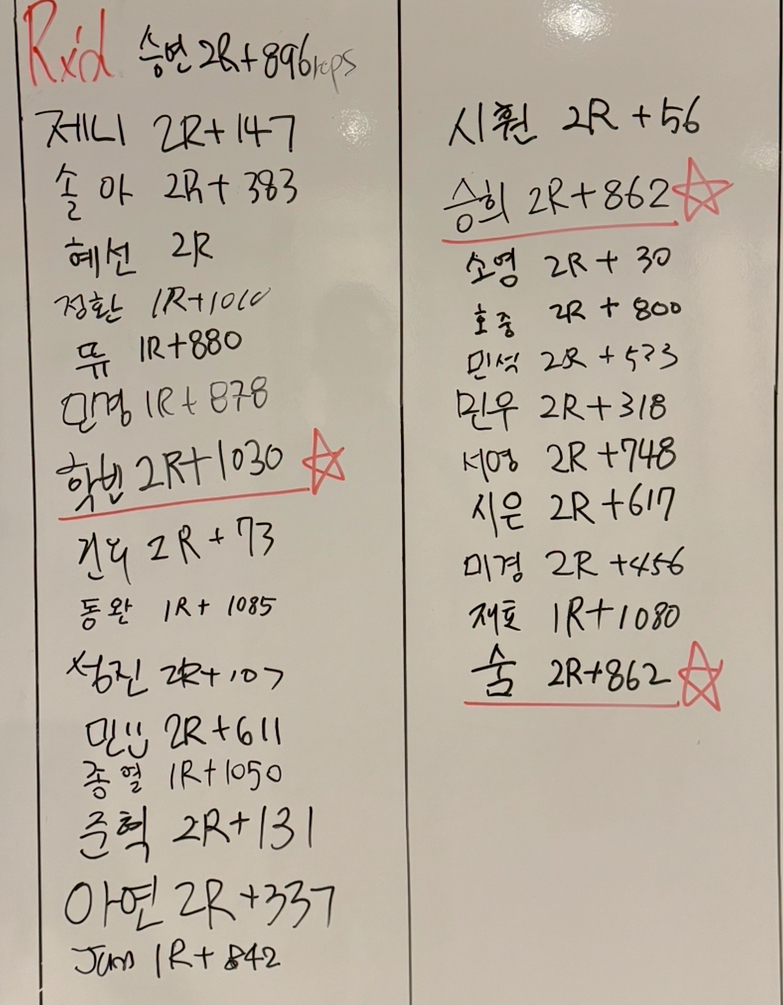 Rx'd 승연 2R+896reps
제니 2R+147
솔아 2R+383
혜선 2R
정환 1R+1010
뜌 1R+880
민경 1R+878
학빈 2R+1030
건위 2R+73
동완 1R+1085
성진 2R+107
민 2R+611
종열 1R+1050
준혁 2R+131
아연 2R+337
Jun 1R+842
시훤 2R+56
승희 2R+862
소영 2R+30
호중 2R+800
민석 2R+533
민우 2R+318
서영 2R+748
시은 2R+617
미경 2R+456
재호 1R+1080
숨 2R+862